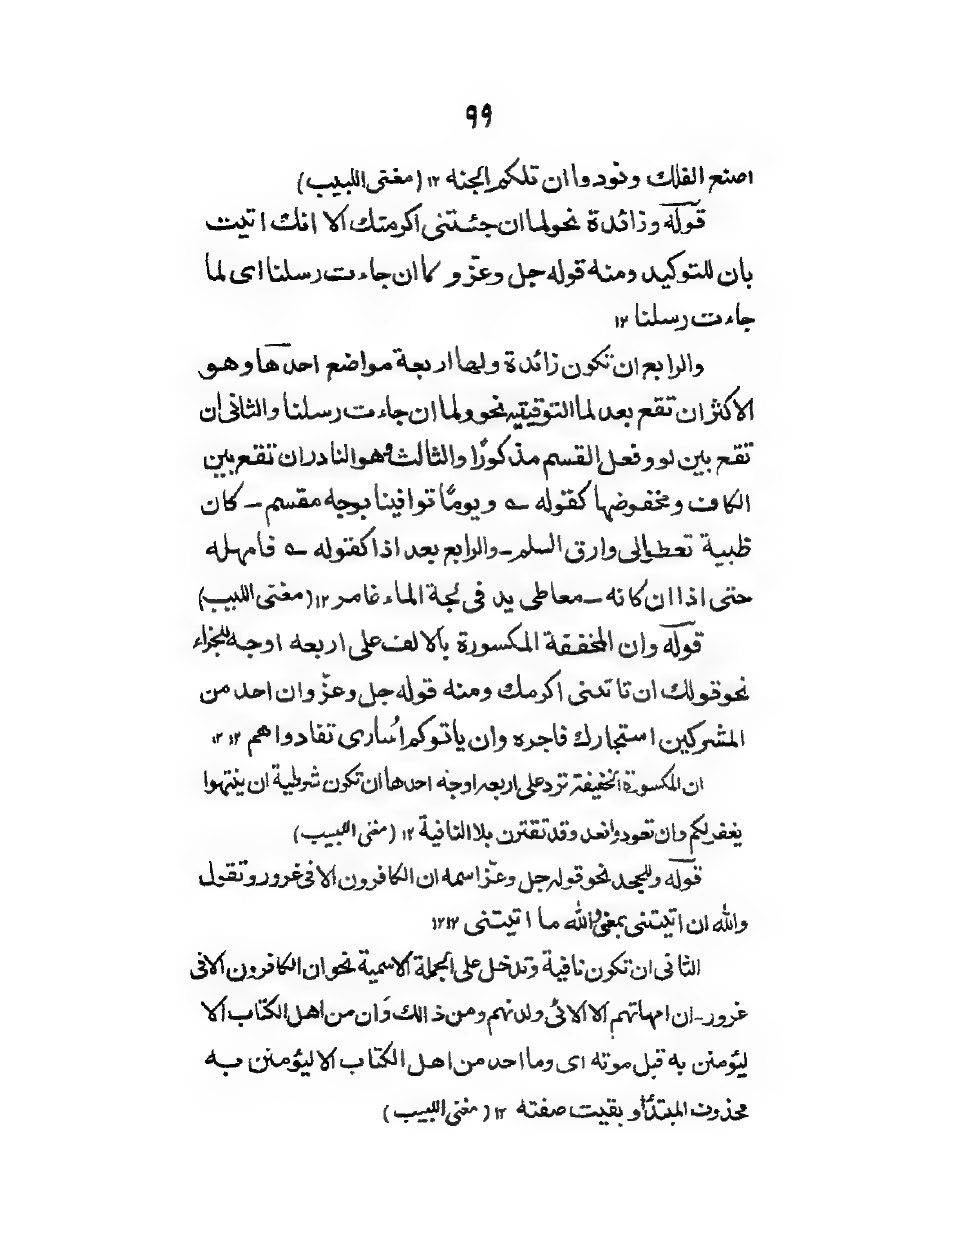 ٩٩
اصنع الفلك ونودوا ان تلكم الجنه ١٢ (مغنى اللبيب)
قوله وزائدة نحو لما ان جئتنى اكرمتك الا انك اتيت
بان للتوكيد ومنه قوله جل وعزّ و لما ان جاءت رسلنا اى لما
جاءت رسلنا ١٢
والرابع ان تكون زائدة ولها اربعة مواضع احدها وهو
الاكثر ان تقع بعد لما التوقيتيه نحو ولما ان جاءت رسلنا والثانى ان
تقع بين لو وفعل القسم مذكورًا والثالث وهو النادر ان تقع بين
الكاف ومخفوضها كقوله ؎ ويومًا توافينا بوجه مقسم ـ كان
ظبية تعطو الى وارق السلم ـ والرابع بعد اذا كقوله ؎ فامهله
حتى اذا ان كانه ـ معاطى يد فى لجة الماء غامر ١٢ (مغنى اللبيب)
قوله وان المخففة المكسورة بالالف على اربعه اوجه للجزاء
نحو قولك ان تاتنى اكرمك ومنه قوله جل وعزّ وان احد من
المشركين استجارك فاجره وان ياتوكم اسُارى تفادوا هم ١٢ ١٢
ان المكسورة الخفيفة ترد على اربعه اوجه احدها ان تكون شرطية ان ينتهوا
يغفر لكم وان تعودوا نعد وقد تقترن بلا النافية ١٢ (مغنى اللبيب)
قوله وللجحد نحو قوله جل وعزّ اسمه ان الكافرون الا فى غرور وتقول
والله ان اتيتنى بمعنى والله ما اتيتنى ١٢١٢
الثانى ان تكون نافية وتدخل على الجملة الاسمية نحو ان الكافرون الا فى
غرور ـ ان امهاتهم الا الائى ولدنهم ومن ذالك وَان من اهل الكتاب الا
ليؤمنن به قبل موته اى وما احد من اهل الكتاب الا ليؤمنن به
محذوف المبتدأ وبقيت صفته ١٢ (مغنى اللبيب)